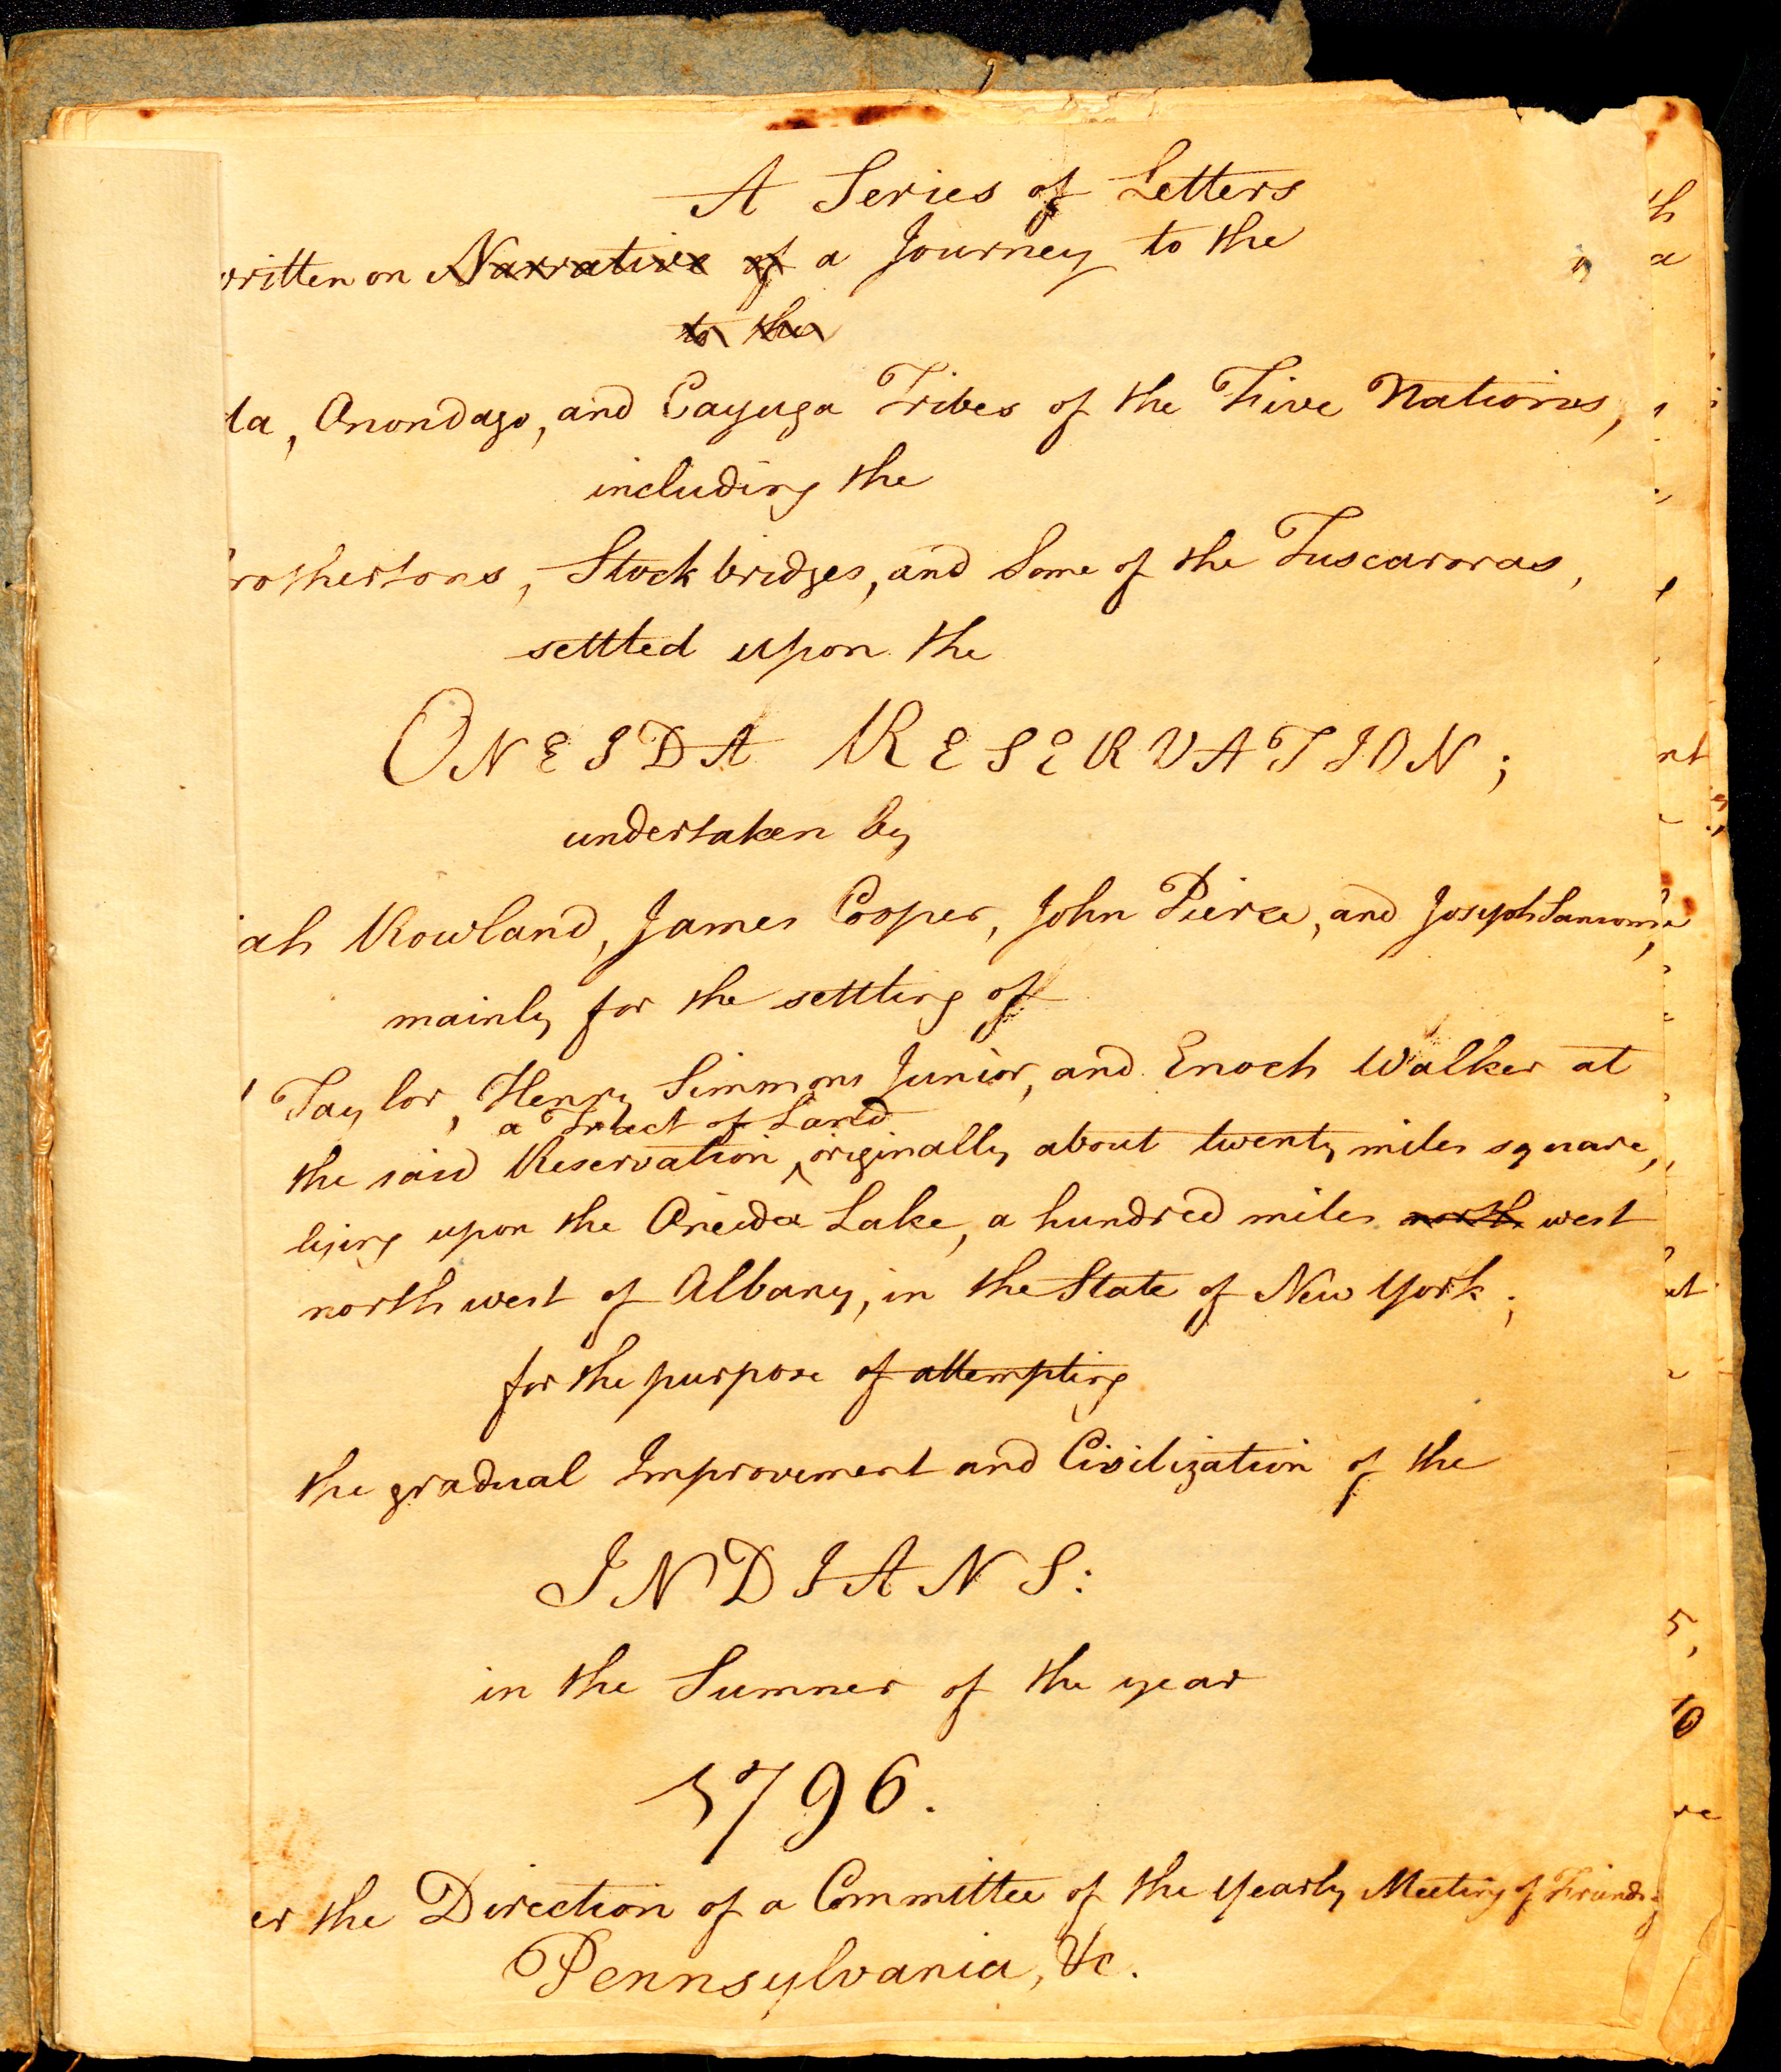 A Series of Letters
written on Narrative of a Journey to the
to the
da, Onondago, and Cayuga Tribes of the Five Nations,
including the
rothertons, Stockbridges, and Some of the Tuscaroras,
settled upon the
ONEIDA RESERVATION;
undertaken by
iah Rowland, James Cooper, John Pierce, and Joseph Sansome,
mainly for the settling of
Taylor, Henry Simmons Junior, and Enoch Walker at
a Tract of Land
the said Reservation, originally about twenty miles square,
lying upon the Oneida Lake, a hundred miles north west
north west of Albany, in the State of New York;
for the purpose of attempting
the gradual Improvement and Civilization of the
INDIANS:
in the Summer of the year
1796.
er the Direction of a Committee of the Yearly Meeting of Friends
Pennsylvania, &c.